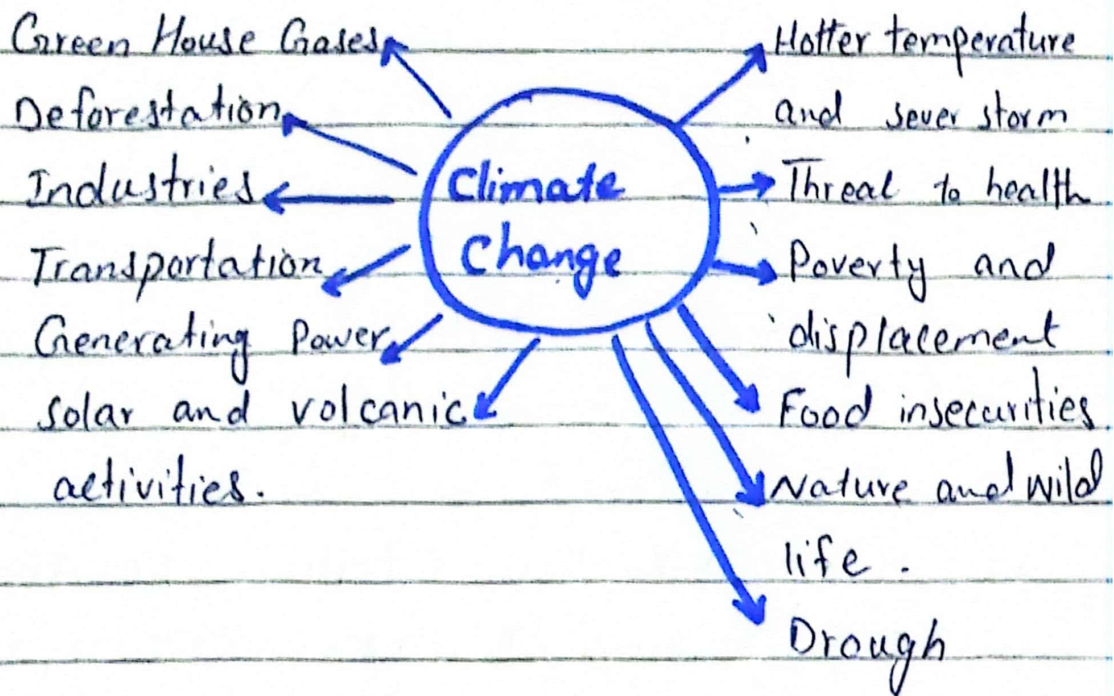 Green House Gases
Deforestation
Industries
Transportation
Generating Power
solar and volcanic
activities.
Climate
Change
Hotter temperature
and sever storm
Threat to health
Poverty and
displacement
Food insecurities.
Nature and wild
life.
Drough